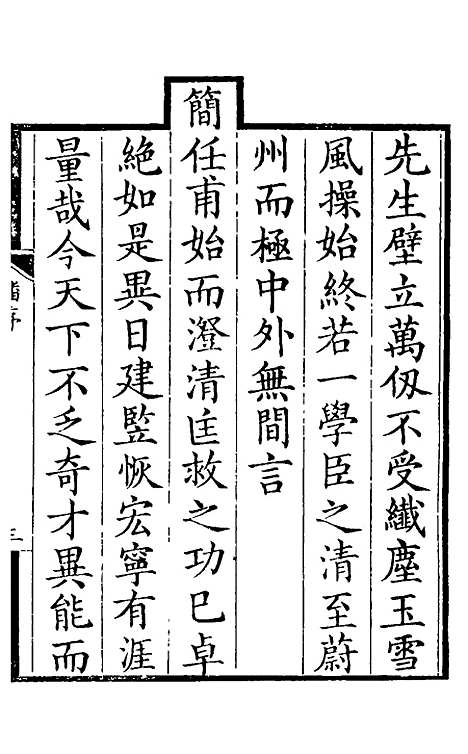 先生壁立萬仭不受纖塵玉雪
風操始終若一學臣之清至蔚
州而極中外無間言
簡任甫始而澄清匡救之功已卓
絶如是異日建豎恢宏寧有涯
量哉今天下不乏奇才異能而
序
三